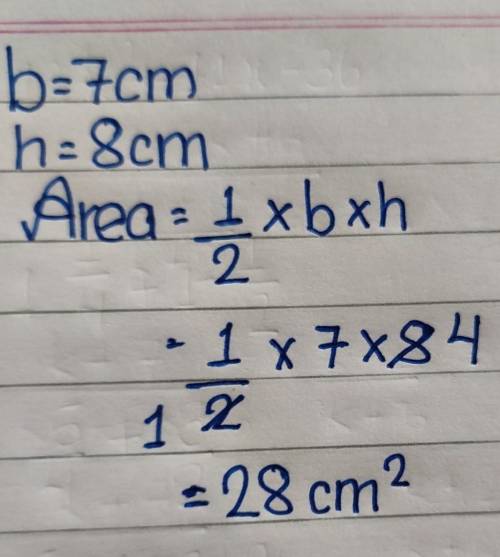 b=7cm
h=8cm
Area = 1/2 × b × h
= 1/2 × 7 × 8 4
1
= 28 cm²